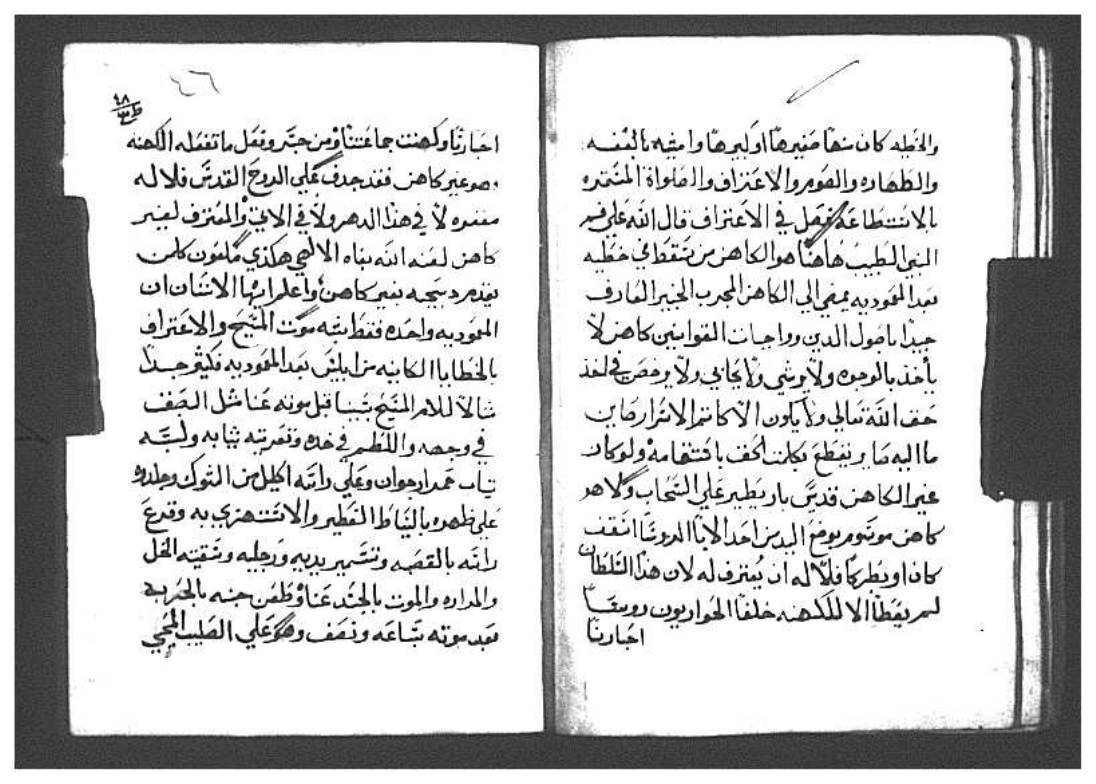 والخطيه كان منها صغيرها او كبيرها وامثيه بالعفه
والطهاره والصوم والاعتراف والصلواة المستمره
بالاستطاعه فصل في الاعتراف قال الله على فم
النبي الطبيب هاهنا هو الكاهن من سقط في خطيه
بعد المعموديه يمضي الى الكاهن المجرب الخبير العارف
جيدا باصول الدين وواجبات القوانين كاهن لا
يأخذ بالوجوه ولا يرشي ولا يحابي ولا يرخص في اخذ
حق الله تعالى ولا يكون الا كاتم الاسرار صاين
ما اليه صار ويقطع بكلمت الحق باستقامه ولو كان
غير الكاهن قديس بار يطير على السحاب ولا هو
كاهن موسوم بوضع اليد من احد الاباء الروسا اسقف
كان او بطركا فلا له ان يعترف له لان هذا السلطان
لم يعطا الا للكهنه خلفا الحواريون روسا
احبارنا
٤٦
احبارنا وكهنت جماعتنا ومن جسر وفعل ما تفعله الكهنه
وهو غير كاهن فقد جدف على الروح القدس فلا له
مغفره لا في هذا الدهر ولا في الاتي والمعترف لغير
كاهن لعنه الله بفاه الالهي هكذي ملعون كلمن
يقدم دبيحه بغير كاهن واعلم ايها الانسان ان
المعموديه واحده فقط بشبه موت المسيح والاعتراف
بالخطايا الكاينه من ابليس بعد المعموديه فكثير جدا
مثالا لالام المسيح سيدنا قبل موته عنا مثل البصق
في وجهه واللطم في خده وتعريته ثيابه ولبسه
تياب حمر ارجوان وعلى راسه اكليل من الشوك وجلده
على ظهره بالسياط الشطير والاستهزي به وقرع
راسه بالقصبه وتسمير يديه ورجليه وسقيه الخل
والمراره والموت بالجسد عنا وطعن جنبه بالحربه
بعد موته بساعه ونصف وهو على الصليب المحيي